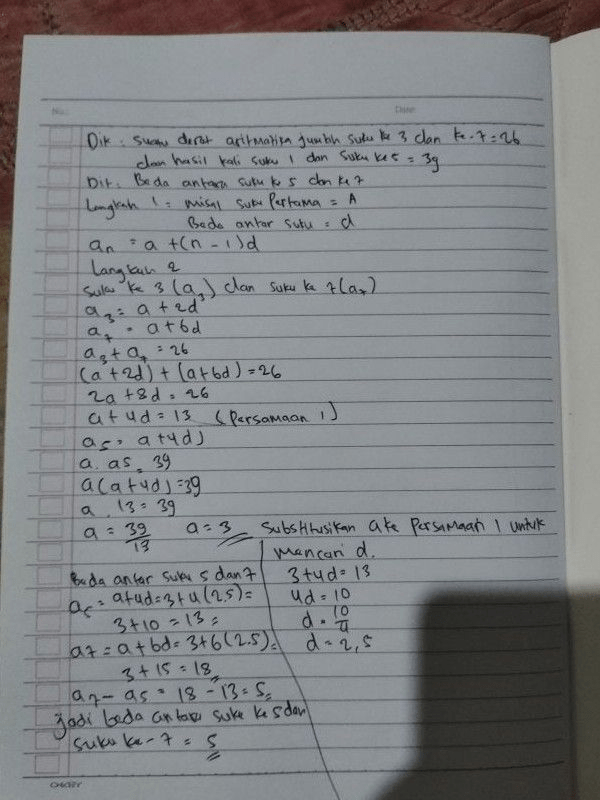 No.: Date:
Dik : suatu deret aritmatika jumlah suku ke 3 dan ke-7 = 26
dan hasil kali suku 1 dan suku ke 5 = 39
Dit : Beda antara suku ke 5 dan ke 7
Langkah 1 = misal suku Pertama = A
Beda antar suku = d
aₙ = a + (n - 1)d
Langkah 2
suku ke 3 (a₃) dan suku ke 7 (a₇)
a₃ = a + 2d
a₇ = a + 6d
a₃ + a₇ = 26
(a + 2d) + (a + 6d) = 26
2a + 8d = 26
a + 4d = 13 (Persamaan 1)
a₅ = a + 4d)
a . a5 = 39
a (a + 4d) = 39
a . 13 = 39
a = 39/13 a = 3 Substitusikan a ke Persamaan 1 untuk
mencari d.
3 + 4d = 13
4d = 10
d = 10/4
d = 2,5
Beda antar suku 5 dan 7
a₅ = a + 4d = 3 + 4(2.5) =
3 + 10 = 13 =
a7 = a + 6d = 3 + 6(2.5) =
3 + 15 = 18
a₇ - a₅ = 18 - 13 = 5
Jadi beda antara suku ke 5 dan
suku ke-7 = 5